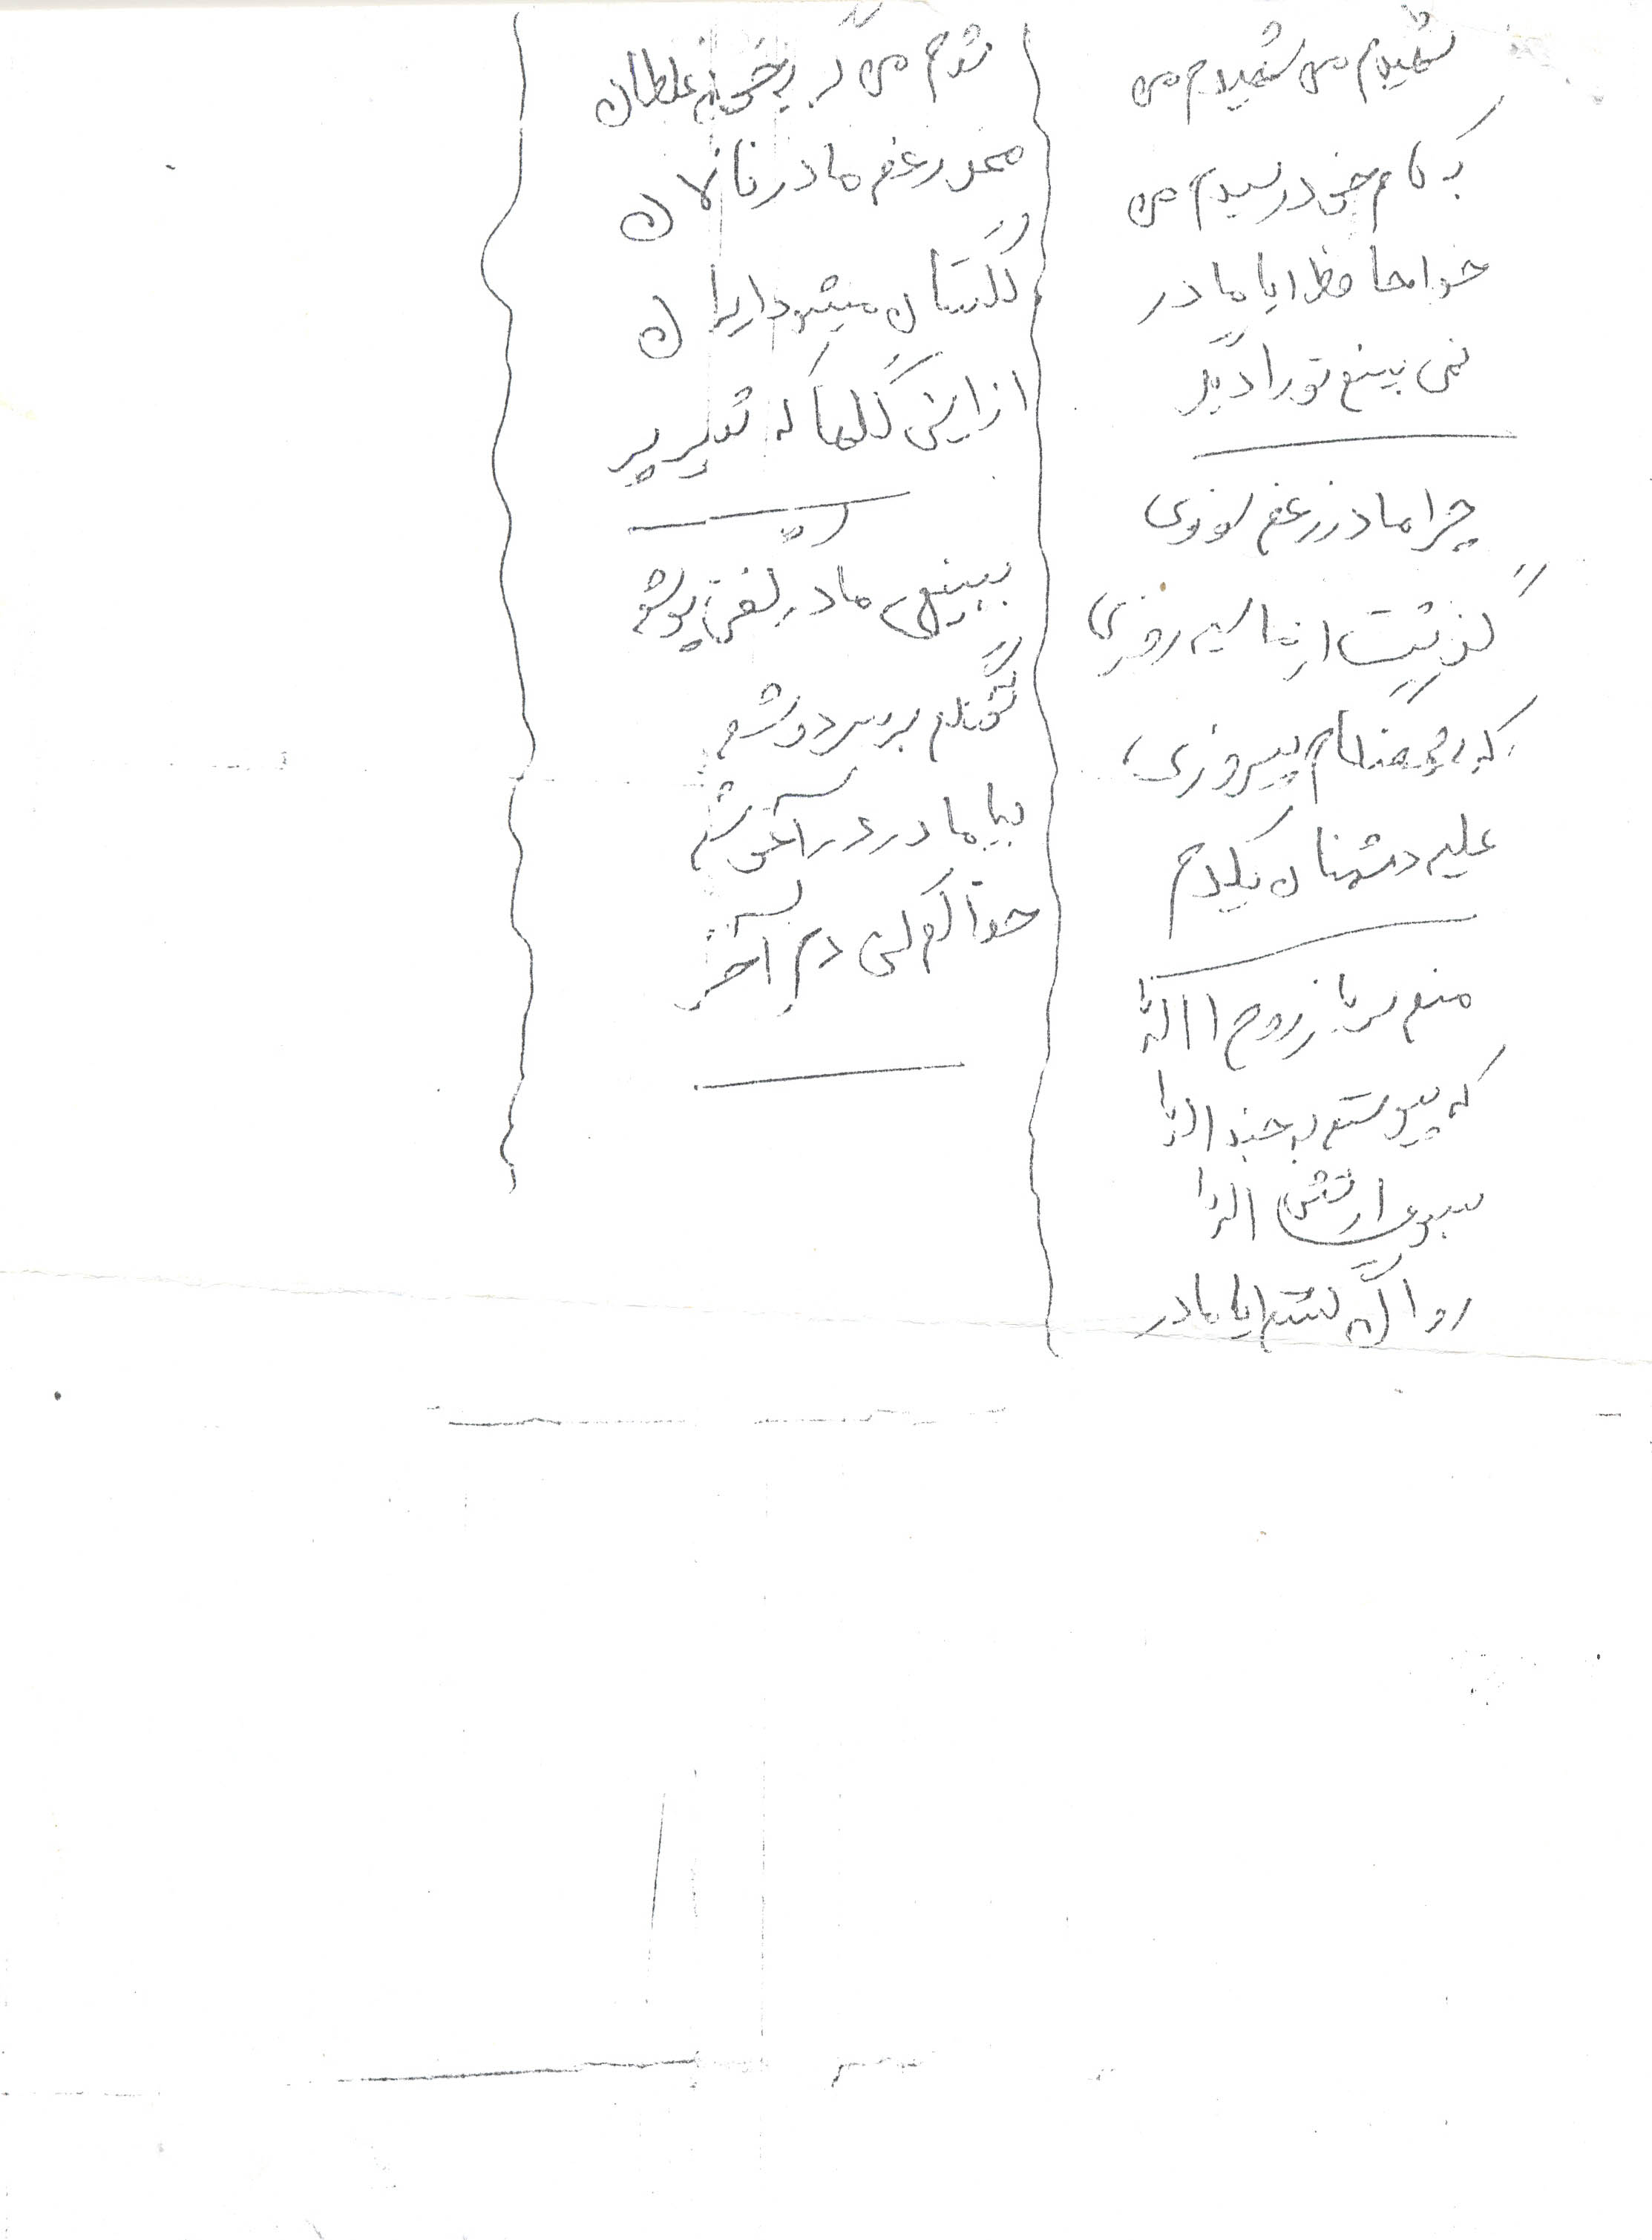 شهیدم من شهیدم من
به کام خود رسیدم من
خداحافظ ایا مادر
نمی بینم تو را دیگر
چرا مادر ز غم سوزی
گذشت از ما سیه روزی
که هنگام پیروزی
علیه دشمنان یکدم
منم سرباز روح ا الله
که پیوستم به جند الله
بسوی ارتش الله
روان گشتم ایا مادر
شدم من گر بخون غلطان
مخور غم مادر نالان
گلستان میشود ایران
از این گلها که شد پرپر
ببینی مادر کفن پوشم
تفنگم بر سر دوشم
بیا مادر در آغوشم
حلالم کن دم آخر